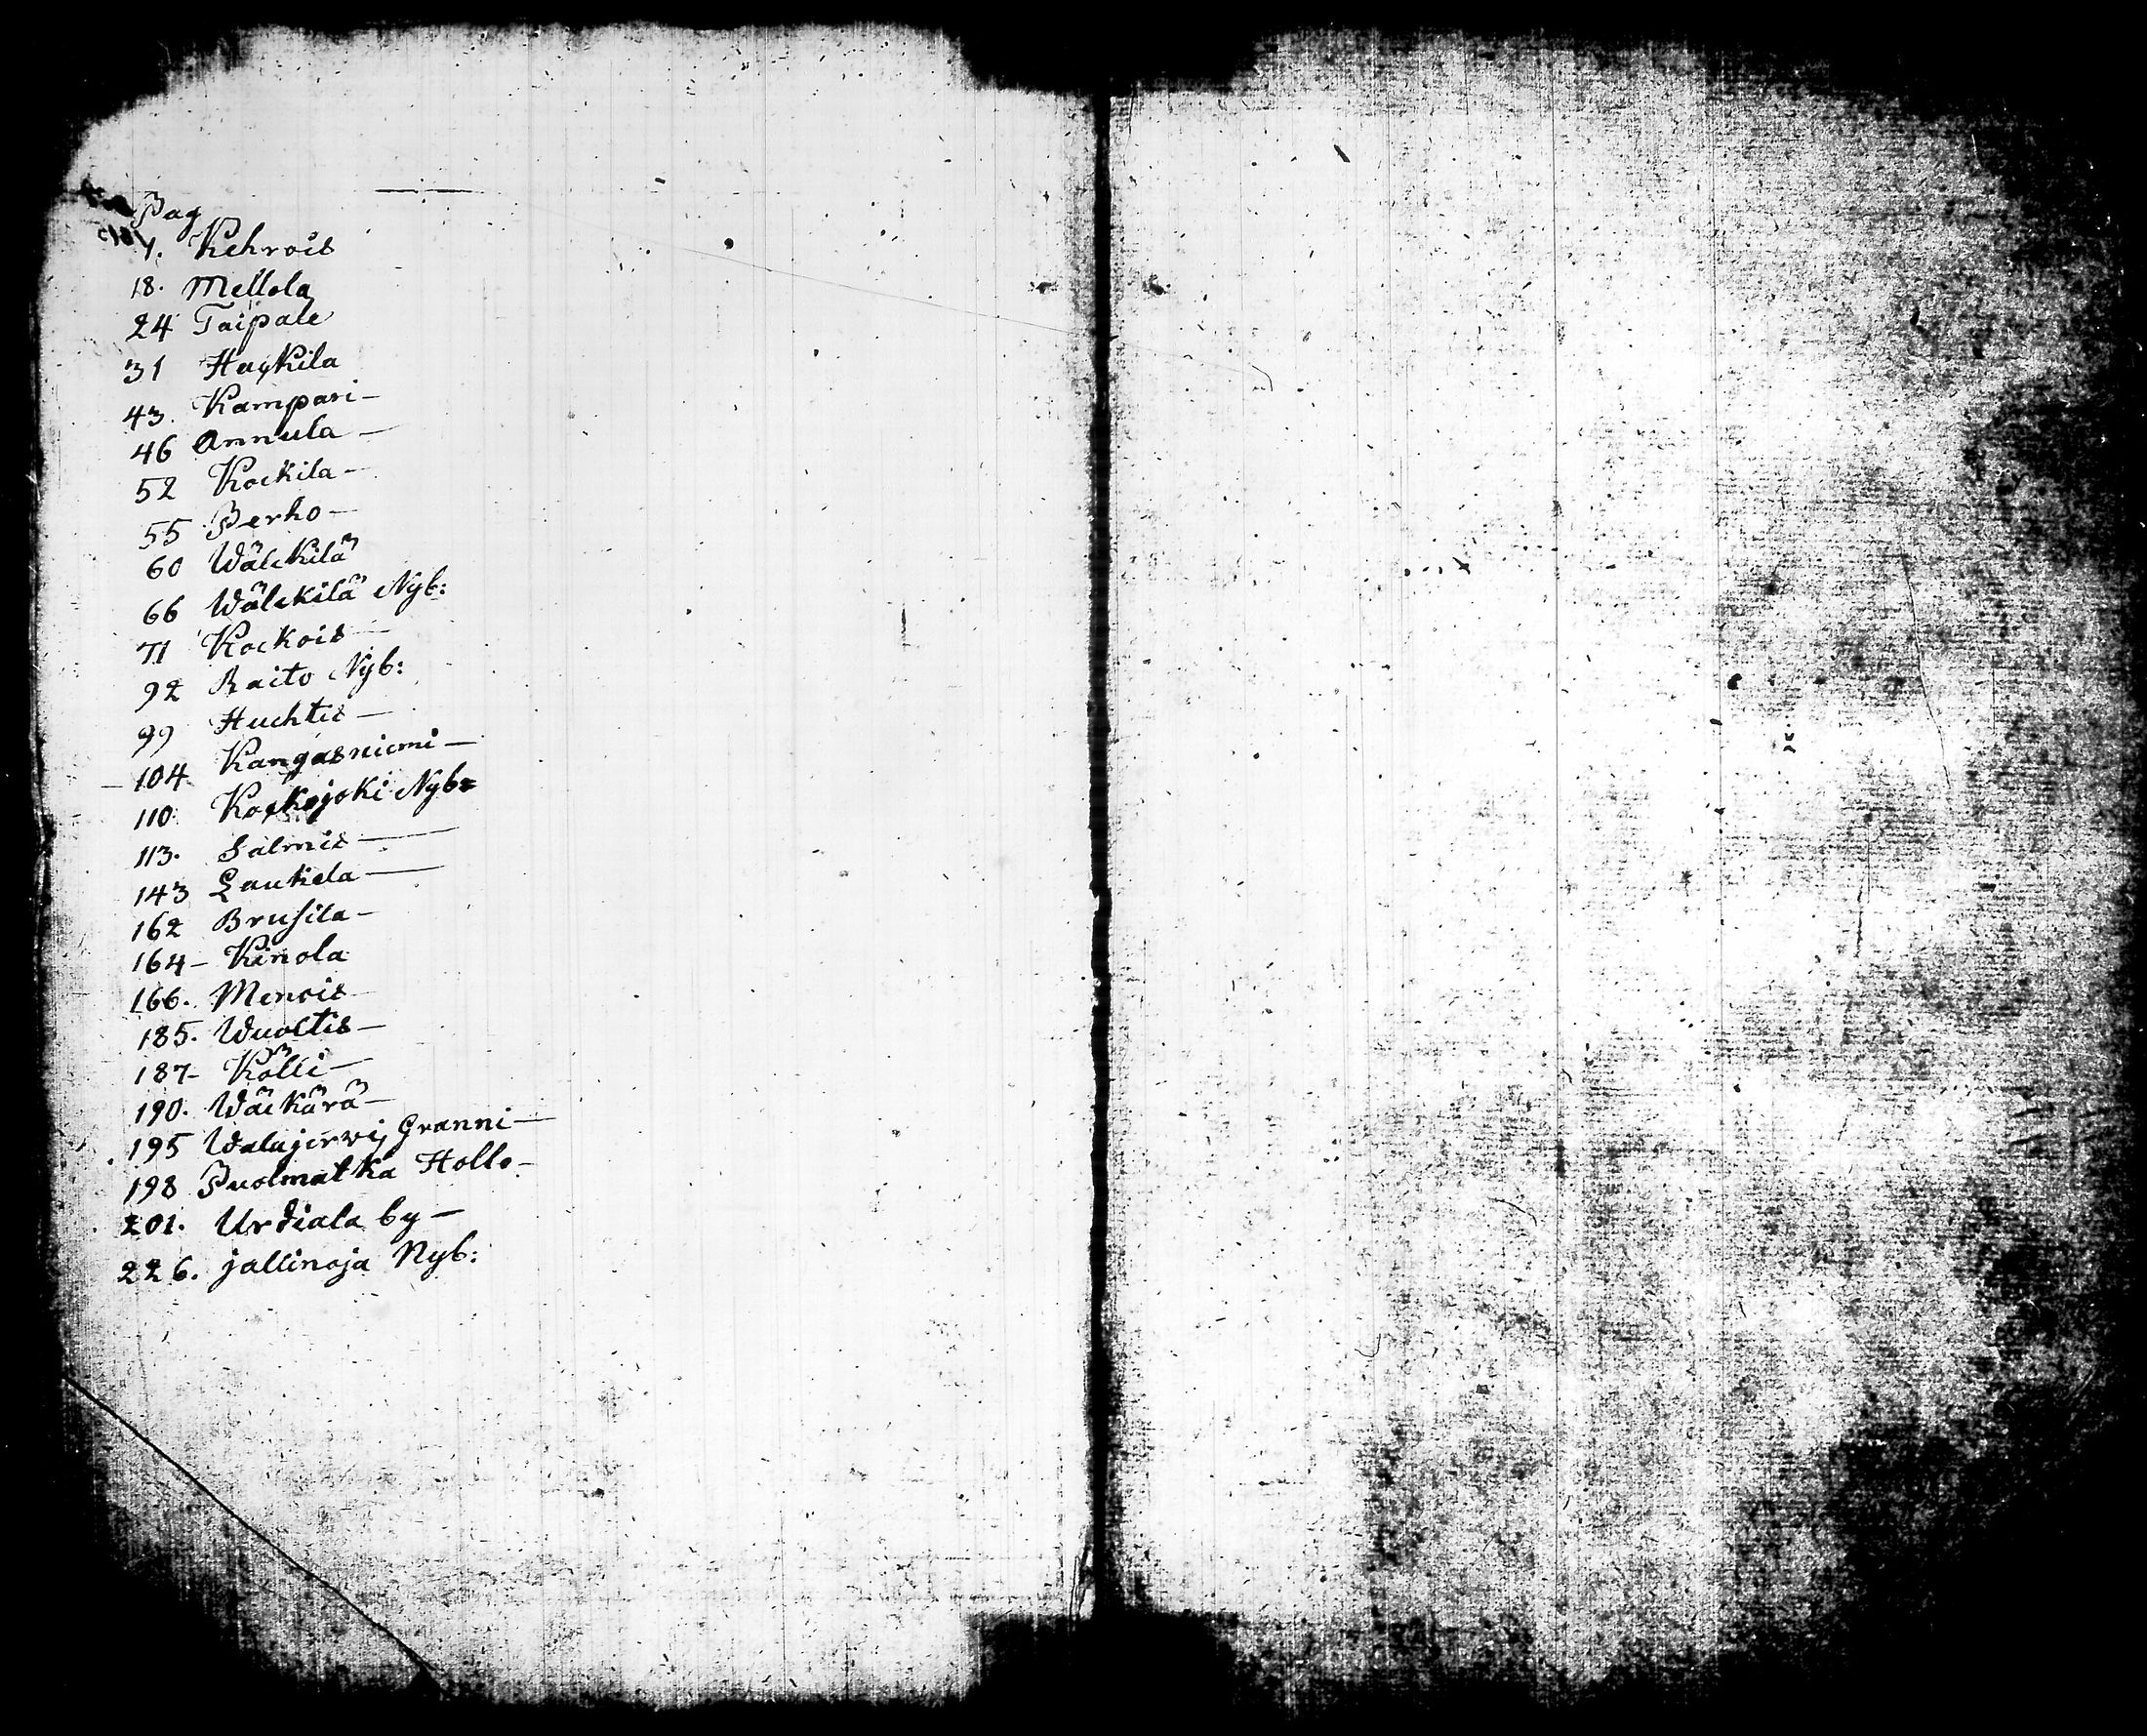 Pag
1. Kehrois
18. Mellola
24 Taipale
31 Hackila
43. Kampari -
46 Annula -
52 Kockila -
55 Perho -
60 Wälckilä
66 Wälckilä Nyb:
71 Kockois -
92 Raito Nyb:
99 Huchtis -
104 Kangasniemi -
110. Koskijoki Nyb:
113. Salmis -
143 Laukela -
162 Brusila -
164 - Kinola
166. Menois -
185. Wuoltis -
187 - Kölli -
190. Wäckärä -
195 Walajerwi, Granni -
198 Puolmatka Hollo -
201. Urdiala by -
226. jallinoja Nyb: